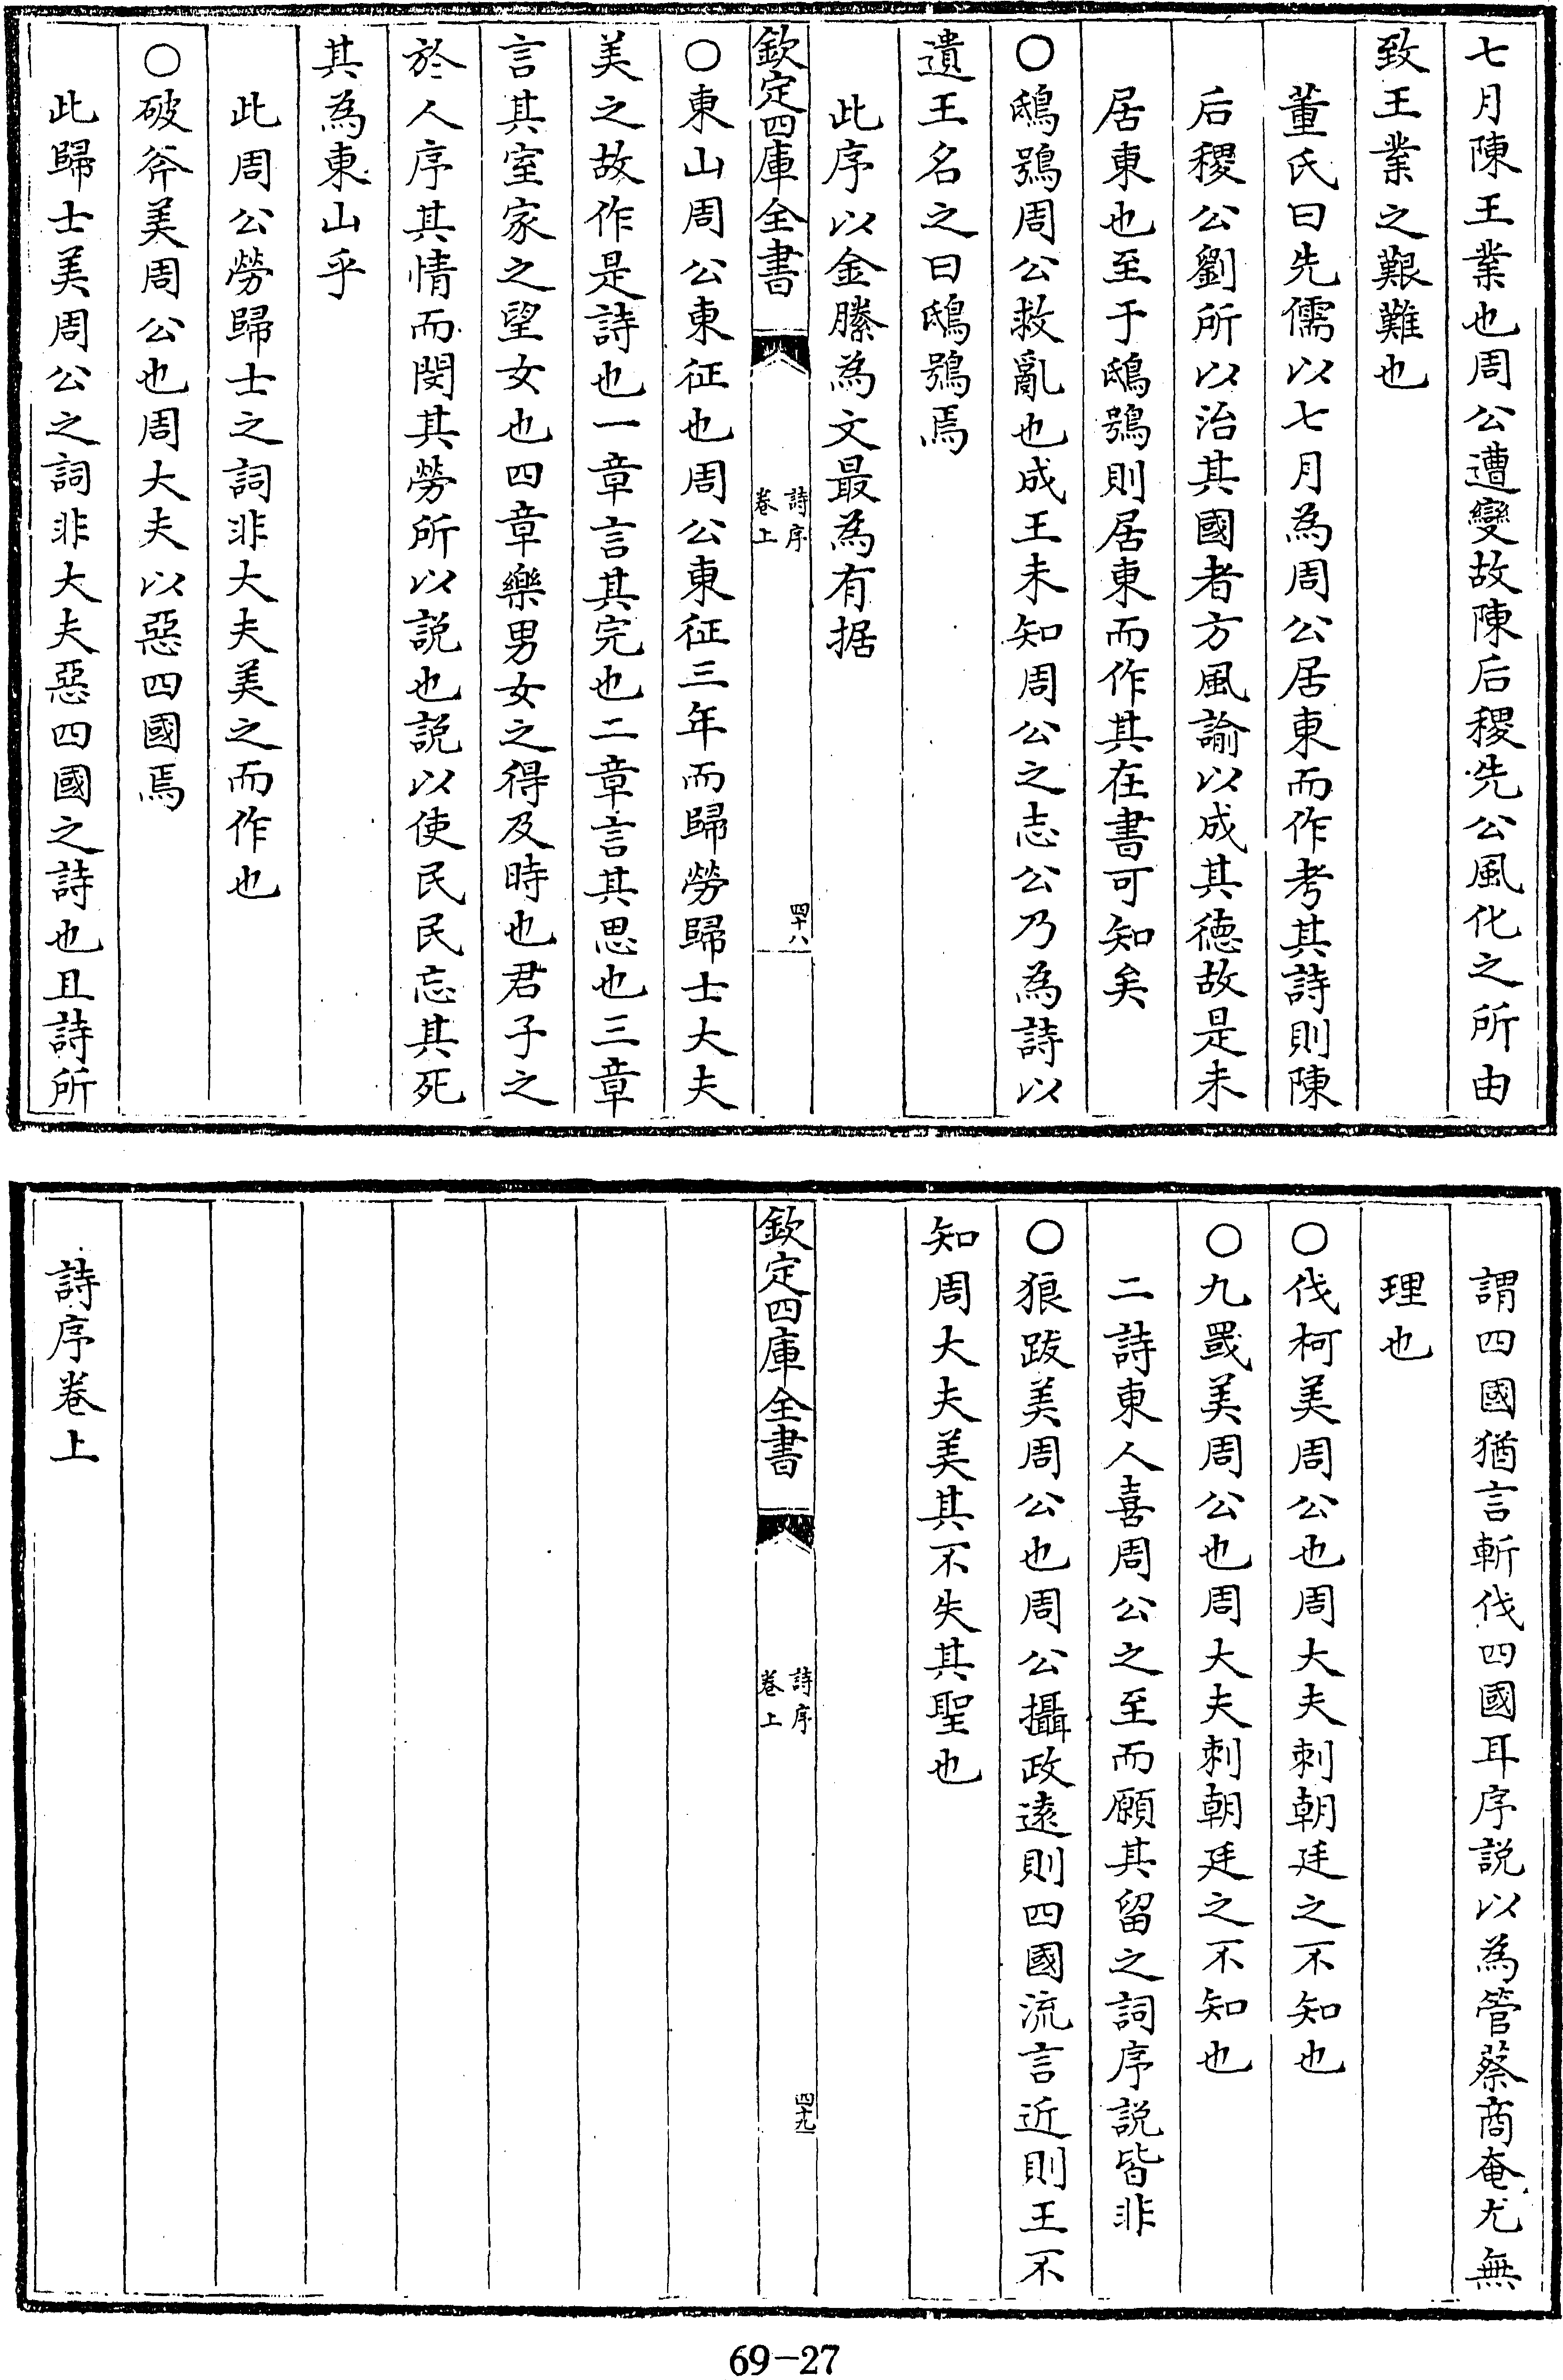 七月陳王業也周公遭變故陳后稷先公風化之所由
致王業之艱難也
董氏曰先儒以七月為周公居東而作考其詩則陳
后稷公劉所以治其國者方風諭以成其德故是未
居東也至于鴟鴞則居東而作其在書可知矣
○鴟鴞周公救亂也成王未知周公之志公乃為詩以
遺王名之曰鴟鴞焉
此序以金縢為文最為有据
欽定四庫全書
詩序
卷上
四十八
○東山周公東征也周公東征三年而歸勞歸士大夫
美之故作是詩也一章言其完也二章言其思也三章
言其室家之望女也四章樂男女之得及時也君子之
於人序其情而閔其勞所以說也說以使民民忘其死
其為東山乎
此周公勞歸士之詞非大夫美之而作也
○破斧美周公也周大夫以惡四國焉
此歸士美周公之詞非大夫惡四國之詩也且詩所
謂四國猶言斬伐四國耳序說以為管蔡商奄尤無
理也
○伐柯美周公也周大夫刺朝廷之不知也
○九罭美周公也周大夫刺朝廷之不知也
二詩東人喜周公之至而願其留之詞序說皆非
○狼跋美周公也周公攝政遠則四國流言近則王不
知周大夫美其不失其聖也
欽定四庫全書
詩序
卷上
四十九
詩序卷上
69-27